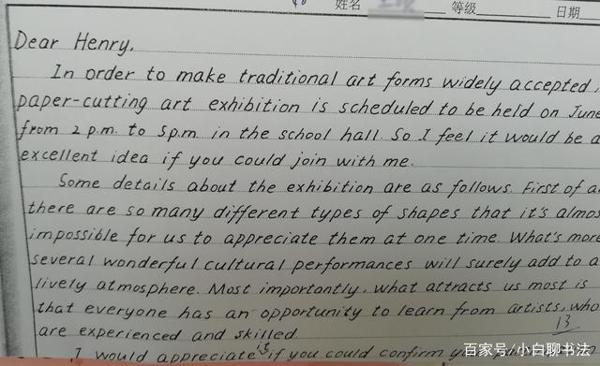 姓名 等级 日期
Dear Henry,
In order to make traditional art forms widely accepted,
paper-cutting art exhibition is scheduled to be held on June
from 2 p.m. to 5p.m. in the school hall. So I feel it would be a
excellent idea if you could join with me.
Some details about the exhibition are as follows. First of a
there are so many different types of shapes that it's almos
impossible for us to appreciate them at one time. What's more
several wonderful cultural performances will surely add to a
lively atmosphere. Most importantly, what attracts us most is
that everyone has an opportunity to learn from artists, who
are experienced and skilled.
13
I would appreciate it if you could confirm
百家号/小白聊书法